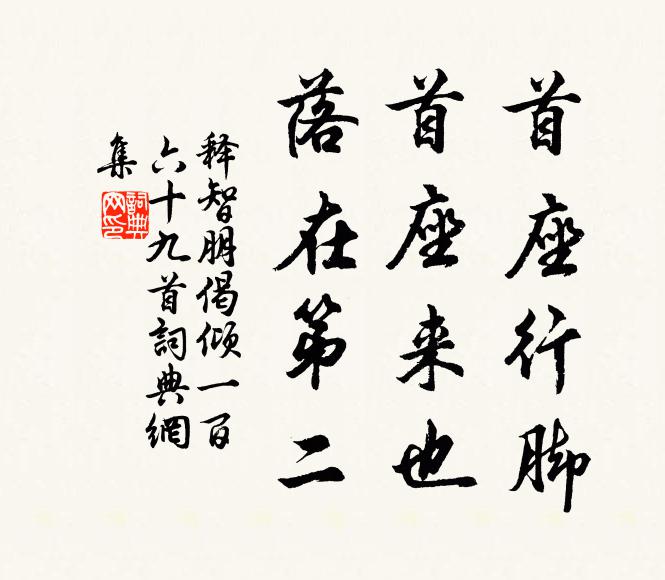 首座行脚
首座来也
落在第二
释智朋偈倾一百
六十九首詞典網
集
詞典
网印